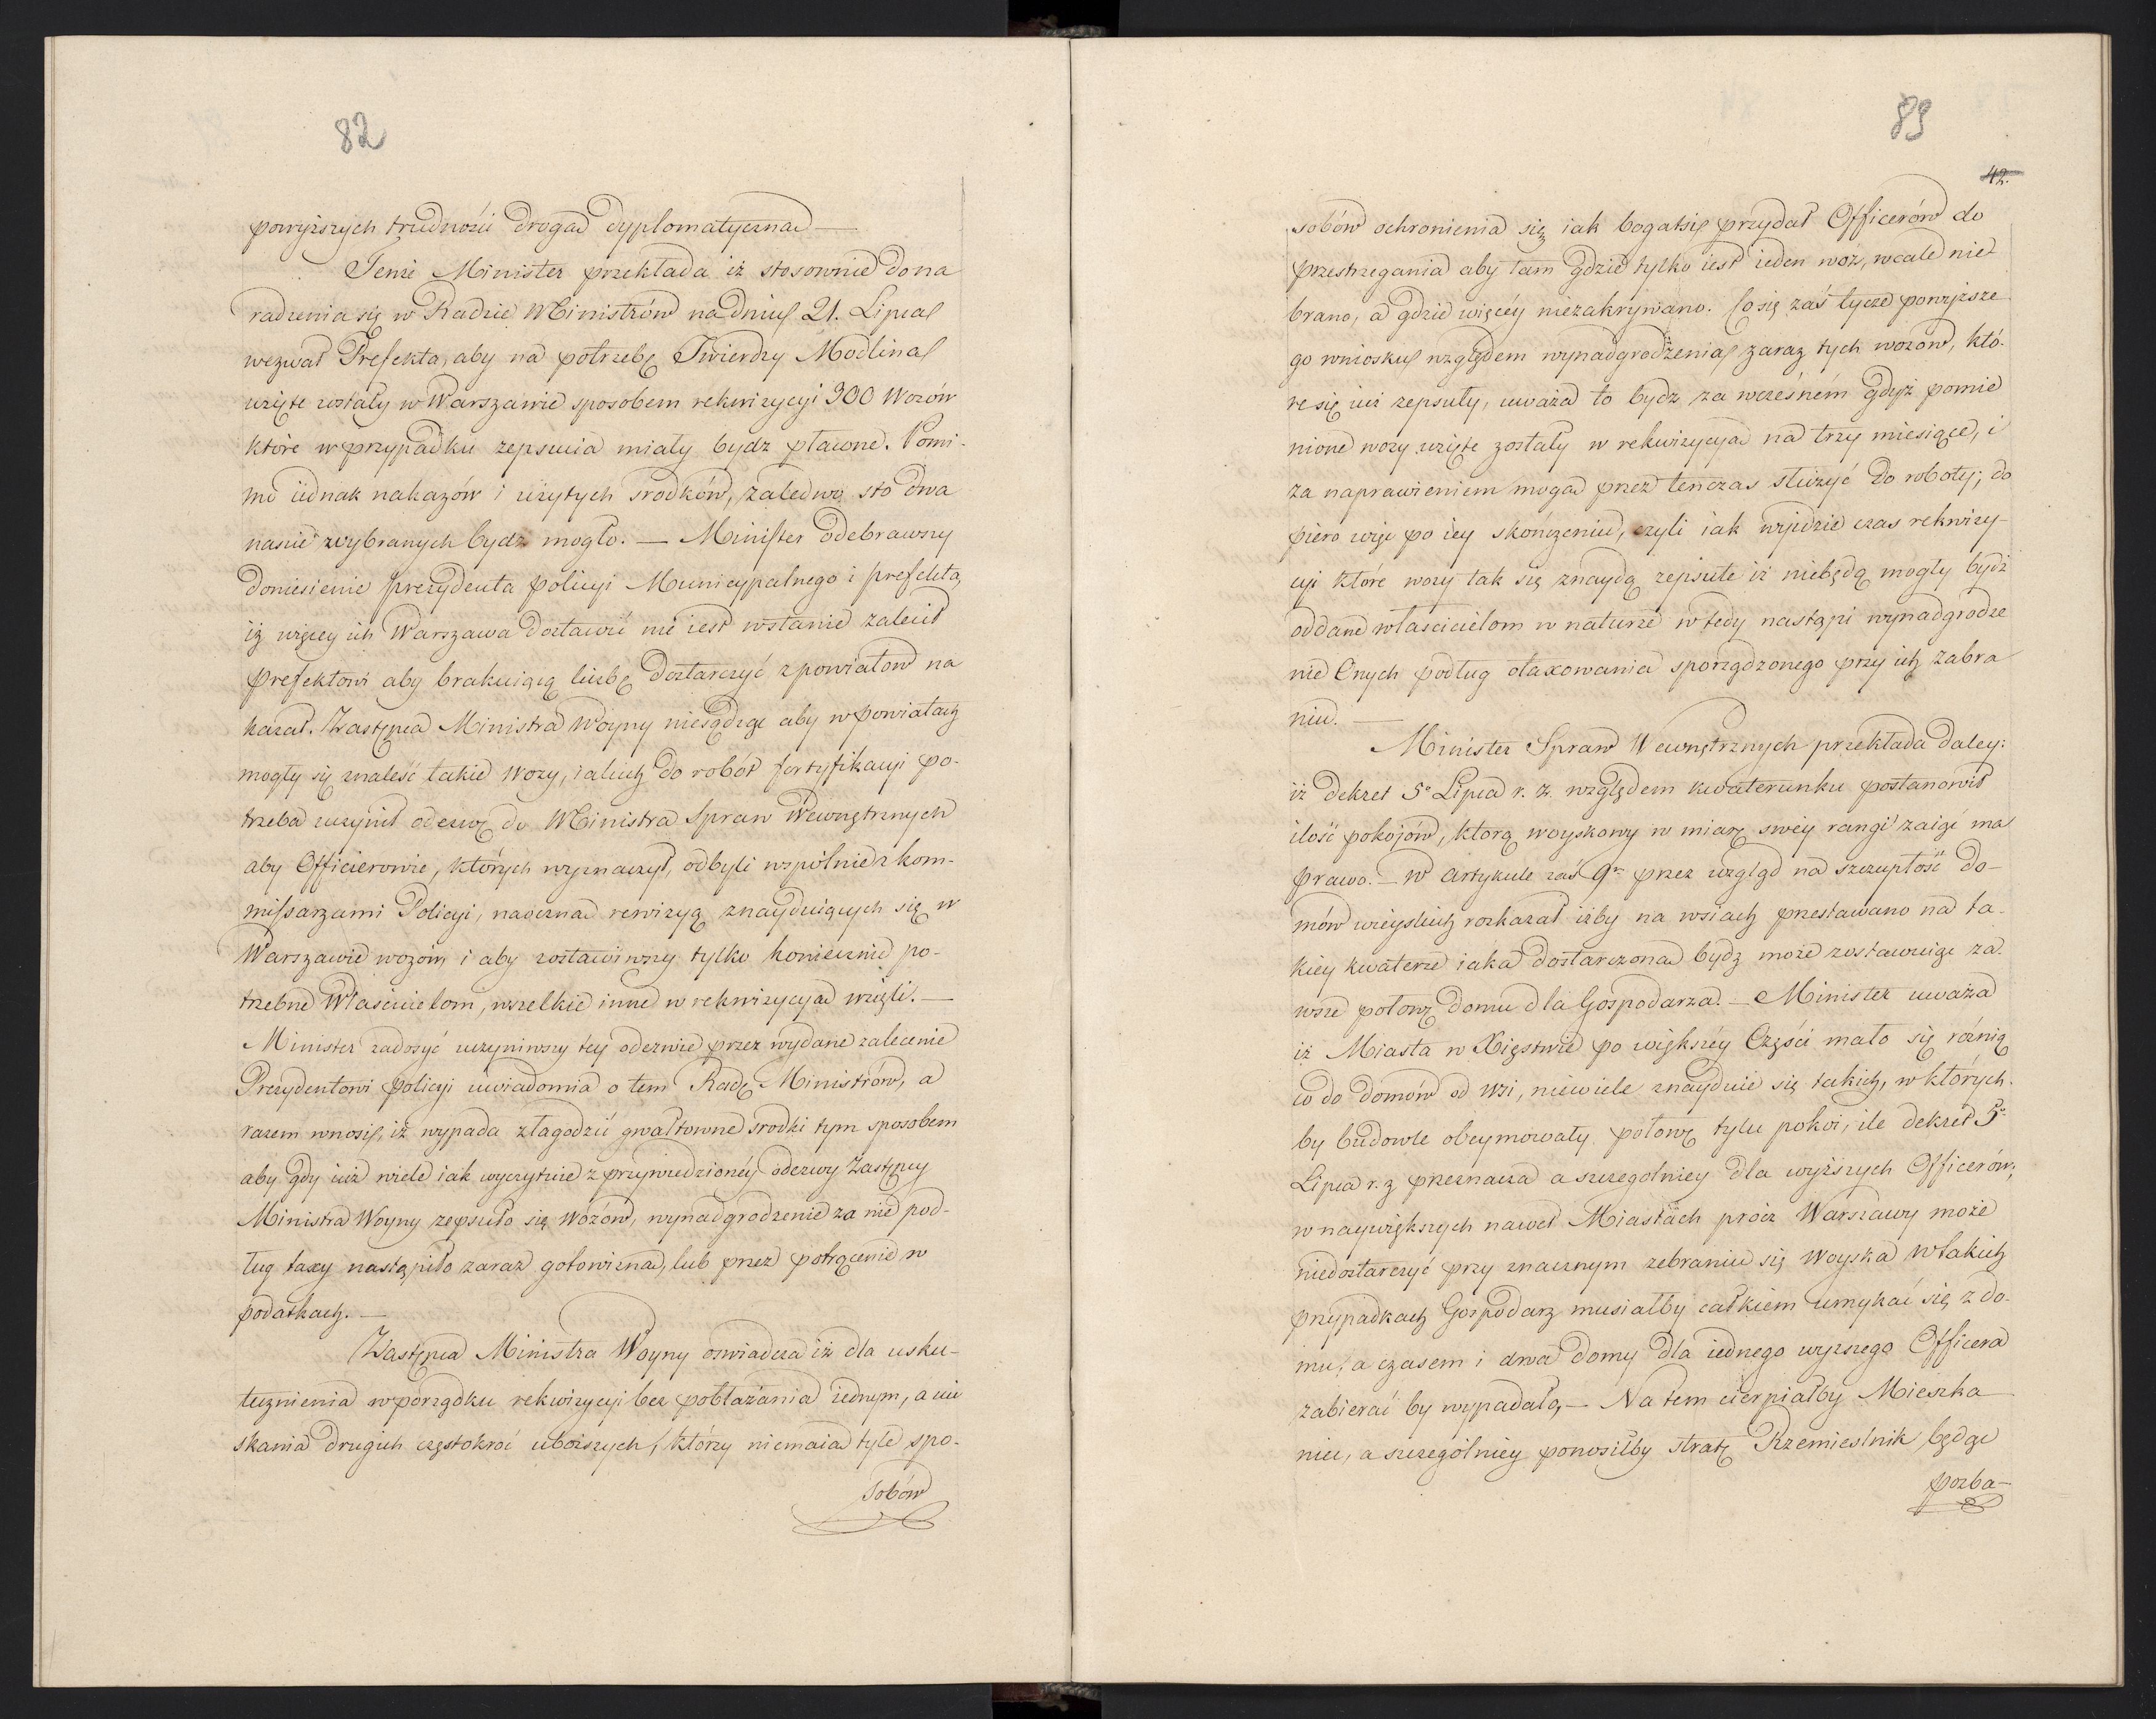 82
powyższych trudności drogą dyplomatyczną —
Tenże Minister przekłada iż stosownie do na
radzenia się w Radzie Ministrów na dniu 21. Lipca
wezwał Prefekta, aby na potrzebę Twierdzy Modlina
wzięte zostały w Warszawie sposobem rekwizycyi 300 Wozów
które w przypadku zepsucia miały bydz płacone. Pomi-
mo iednak nakazów i użytych srodków, zaledwo sto dwa
naście wybranych bydz mogło. — Minister odebrawszy
doniesienie prezydenta policyi Municypalnego i prefekta,
iż więcey ich Warszawa dostawić nie iest wstanie zalecił
prefektowi aby brakuiącą liczbę dostarczyć z powiatow na
kazał. Zastępca Ministra Woyny niesądząc aby w powiatach
mogły się znaleść takie wozy, iakich do robot fortyfikacyi po-
trzeba uczynił odezwę do Ministra Spraw Wewnętrznych
aby Officierowie, których wyznaczył, odbyli wspólnie z kom-
missarzami Policyi, naoczną rewizyą znayduiących się w
Warszawie wozów, i aby zostawiwszy tylko koniecznie po-
trzebne Właścicielom, wszelkie inne w rekwizycyą wzięli. —
Minister zadosyć uczyniwszy téy odezwie przez wydane zalecenie
Prezydentowi policyi uwiadomia o tem Radę Ministrów, a
razem wnosi, iż wypada złagodzić gwałtowne srodki tym sposobem
aby gdy iuż wiele iak wyczytuie z przywiedzionéy odezwy Zastępcy
Ministra Woyny zepsuło się wozów, wynadgrodzenie za nie pod-
ług taxy nastąpiło zaraz gotowizną, lub przez potrącenie w
podatkach. —
Zastępca Ministra Woyny oswiadcza iż dla usku-
tecznienia w porządku rekwizycyi bez pobłażania iednym, a uci
skania drugich częstokroć uboższych, którzy niemaią tyle spo-
sobów
83
42.
sobów ochronienia się iak bogatsi, przydał Officerów do
przestrzegania aby tam gdzie tylko iest ieden woz, wcale nie
brano, a gdzie więcéy niezakrywano. Co się zaś tycze powyższe
go wniosku względem wynadgrodzenia zaraz tych wozów, któ-
re się iuż zepsuły, uważa to bydz za wczesném gdyż pomie
nione wozy wzięte zostały w rekwizycyą na trzy miesiące, i
za naprawieniem mogą przez tenczas służyć do roboty; do
piero więc po iey skonczeniu, czyli iak wyidzie czas rekwizy-
cyi które wozy tak się znaydą zepsute iż niebędą mogły bydź
oddane właścicielom w naturze wtedy nastąpi wynadgrodze
nie Onych podług otaxowania sporządzonego przy ich zabra
niu. —
Minister Spraw Wewnętrznych przekłada daley:
iż dekret 5º Lipca r. z. względem kwaterunku postanowił
ilość pokojów, którą woyskowy w miarę swéy rangi zaiąć ma
prawo. — W artykule zaś 9m przez wzgląd na szczupłość do-
mów wieyskich rozkazał iżby na wsiach przestawano na ta-
kiey kwaterze iaka dostarczoną bydz może zostawuiąc za-
wsze połowę domu dla Gospodarza. — Minister uważa
iż Miasta w Xięstwie po większéy Części mało się różnią
co do domów od wsi, niewiele znayduie się takich, w których
by budowle obeymowały połowę tylu pokoi, ile dekret 5º
Lipca r. z przeznacza a szczególniey dla wyższych Officerów,
w naywiększych nawet Miastach prócz Warszawy może
niedostarczyć przy znacznym zebraniu się Woyska w takich
przypadkach Gospodarz musiałby całkiem umykać się z do-
mu, a czasem i dwa domy dla iednego wyższego Officera
zabierać by wypadało, — Na tem cierpiałby Mieszka
niec, a szczególniey ponosiłby stratę Rzemieslnik będąc
pozba-